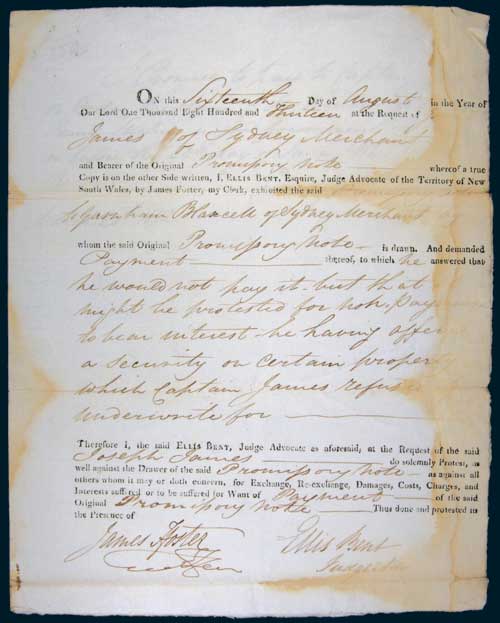 ON this Sixteenth Day of August in the Year of
Our Lord One Thousand Eight Hundred and Thirteen at the Request of
James of Sydney Merchant
and Bearer of the Original Promissory Note whereof a true
Copy is on the other Side written, I, ELLIS BENT, Esquire, Judge Advocate of the Territory of New
South Wales, by James Foster, my Clerk, exhibited the said
to Garnham Blaxcell of Sydney Merchant by
whom the said Original Promissory Note is drawn. And demanded
Payment thereof, to which he answered that
he would not pay it but that
might be protested for non
to bear interest he having
a security on certain property
which Captain James
underwrite for
Therefore I, the said ELLIS BENT, Judge Advocate as aforesaid, at the Request of the said
Joseph James do solemnly Protest, as
well against the Drawer of the said Promissory Note as against all
others whom it may or doth concern, for Exchange, Re-exchange, Damages, Costs, Charges, and
Interests suffered or to be suffered for Want of Payment of the said
Original Promissory Note Thus done and protested in
the Presence of
James Foster Ellis Bent